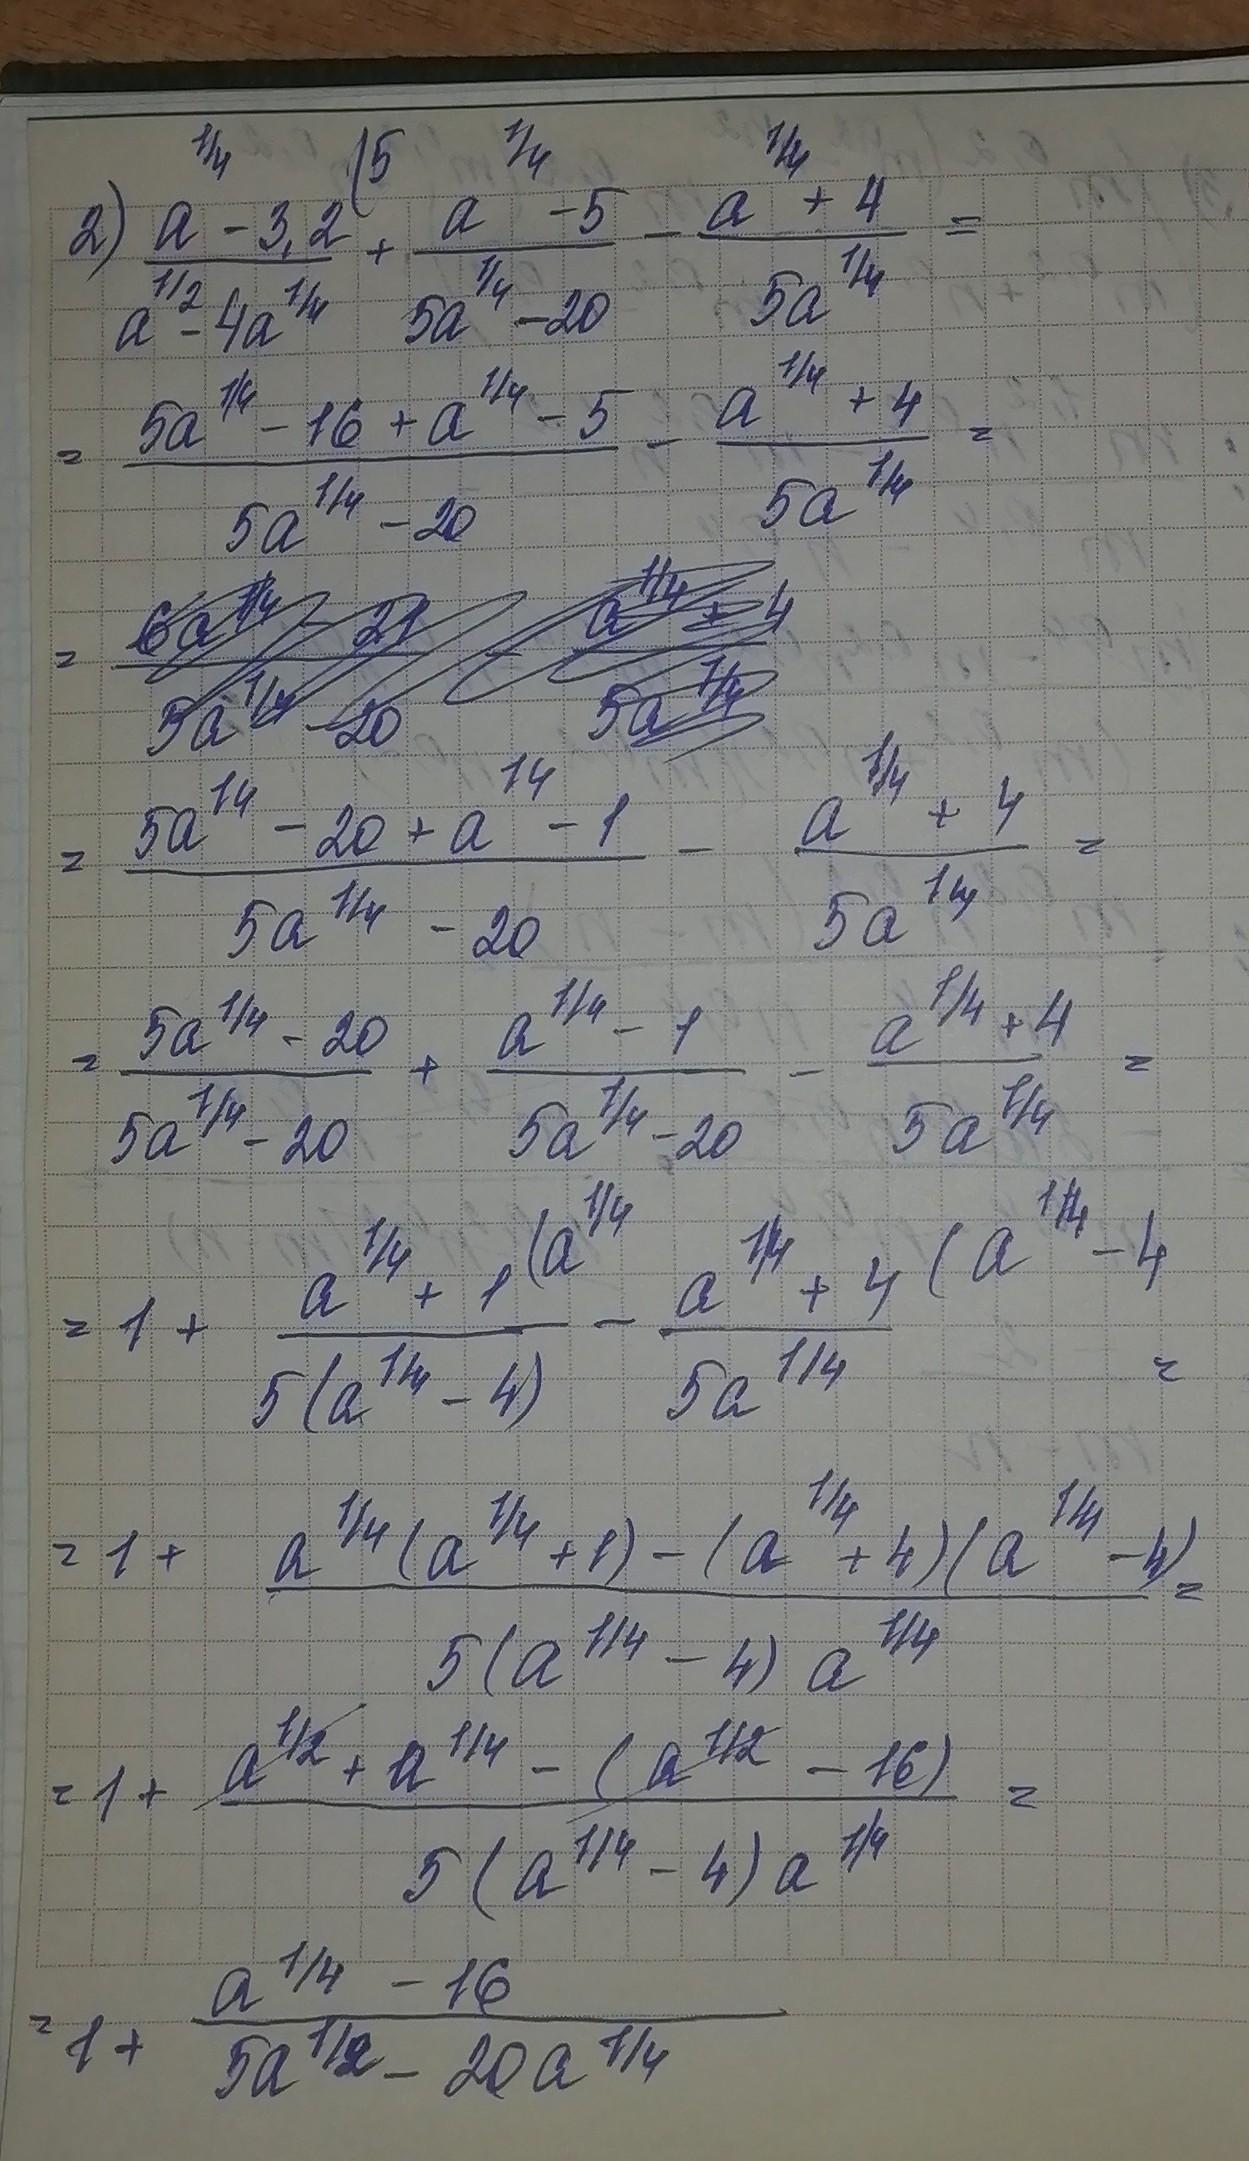 2) (a^{1/4} - 3,2 (5)/(a^{1/2} - 4a^{1/4}) + (a^{1/4} - 5)/(5a^{1/4} - 20) - (a^{1/4} + 4)/(5a^{1/4}) =
= (5a^{1/4} - 16 + a^{1/4} - 5)/(5a^{1/4} - 20) - (a^{1/4} + 4)/(5a^{1/4}) =
= (6a^{1/4} - 21)/(5a^{1/4} - 20) - (a^{1/4} + 4)/(5a^{1/4})
= (5a^{1/4} - 20 + a^{1/4} - 1)/(5a^{1/4} - 20) - (a^{1/4} + 4)/(5a^{1/4}) =
= (5a^{1/4} - 20)/(5a^{1/4} - 20) + (a^{1/4} - 1)/(5a^{1/4} - 20) - (a^{1/4} + 4)/(5a^{1/4}) =
= 1 + (a^{1/4} + 1 (a^{1/4})/(5(a^{1/4} - 4)) - (a^{1/4} + 4 (a^{1/4} - 4)/(5a^{1/4}) =
= 1 + (a^{1/4}(a^{1/4} + 1) - (a^{1/4} + 4)(a^{1/4} - 4))/(5(a^{1/4} - 4) a^{1/4}) =
= 1 + (a^{1/2} + a^{1/4} - (a^{1/2} - 16))/(5(a^{1/4} - 4) a^{1/4}) =
= 1 + (a^{1/4} - 16)/(5a^{1/2} - 20a^{1/4})